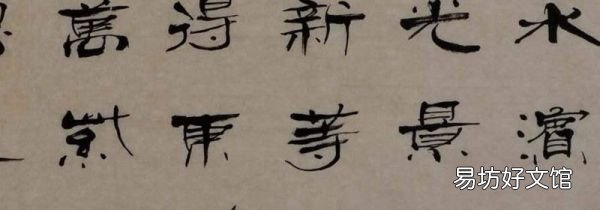 水濱
光景
新等
得東
萬紫
易坊好文馆